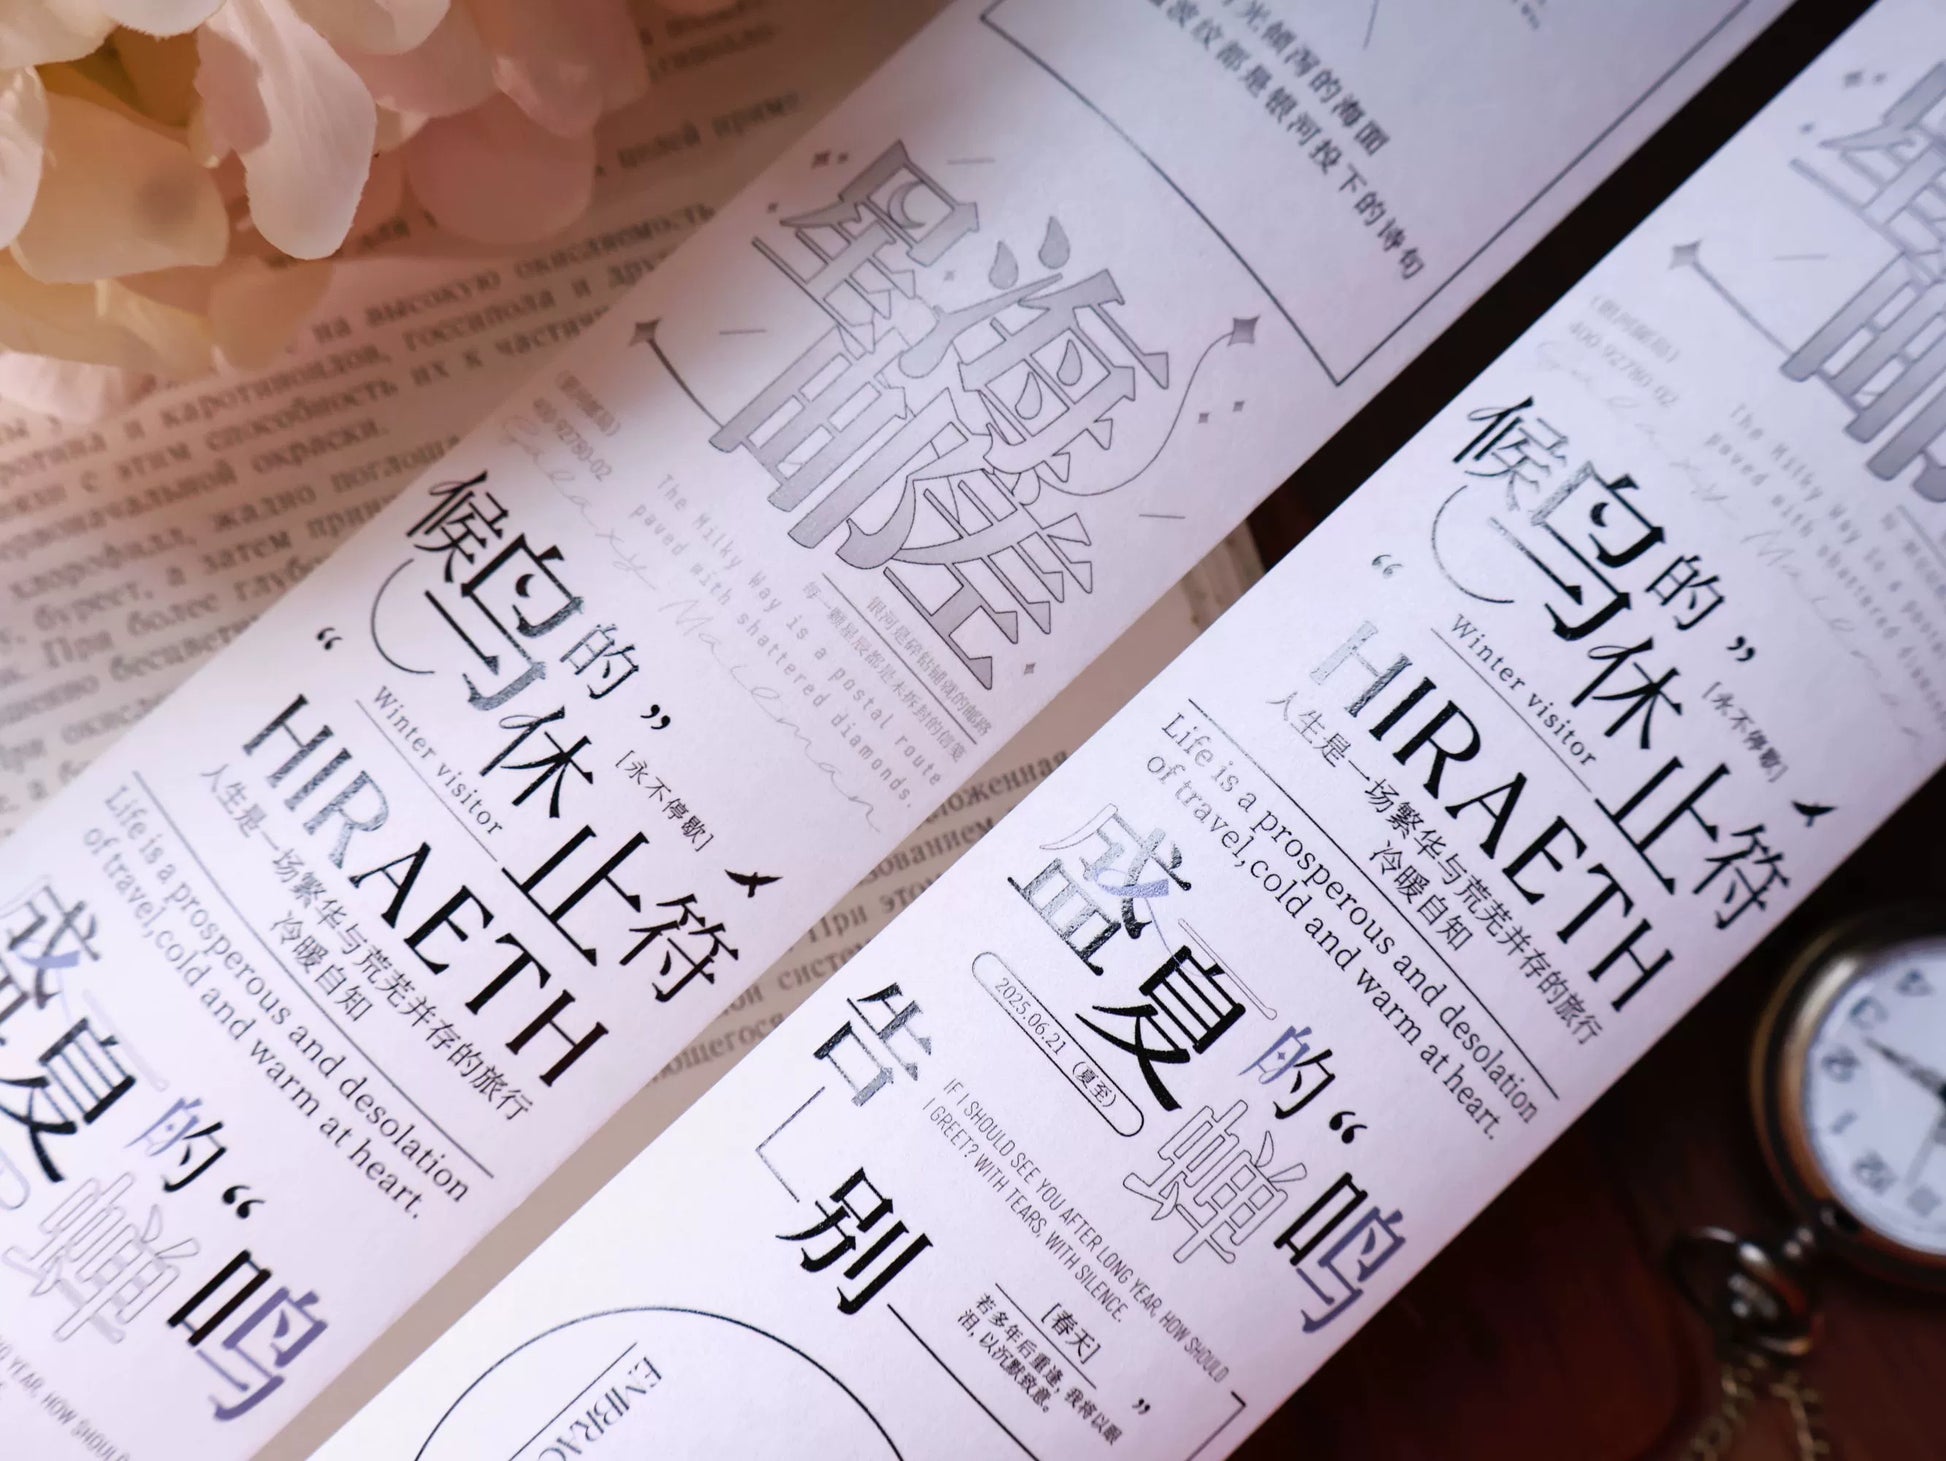 光倾泻的海面
波纹都是银河投下的诗句
星海邮差
(银河邮局)
400-92780-02
Galaxy Maleman
The Milky Way is a postal route
paved with shattered diamonds.
银河是碎钻铺就的邮路
每一颗星辰都是未拆封的信笺
“候鸟的”休止符
[永不停歇]
Winter visitor
HIRAETH
人生是一场繁华与荒芜并存的旅行
冷暖自知
Life is a prosperous and desolation
of travel,cold and warm at heart.
盛夏的“蝉鸣
YEAR, HOW SHOULD
(银河邮局)
400-92780-02
Galaxy Maleman
The Milky Way is a
paved with shattered
“候鸟的”休止符
[永不停歇]
Winter visitor
HIRAETH
人生是一场繁华与荒芜并存的旅行
冷暖自知
Life is a prosperous and desolation
of travel,cold and warm at heart.
盛夏的“蝉鸣
2025.06.21 (夏至)
告别
IF I SHOULD SEE YOU AFTER LONG YEAR, HOW SHOULD
I GREET? WITH TEARS, WITH SILENCE.
[春天]
若多年后重逢，我将以眼
泪，以沉默致意。
”
EMBRAC
на высокую окисляемость
каротиноидов, госсипола и
способность их к
окраски.
жадно
хлорофилл,
буреет, а затем
При более
При этом